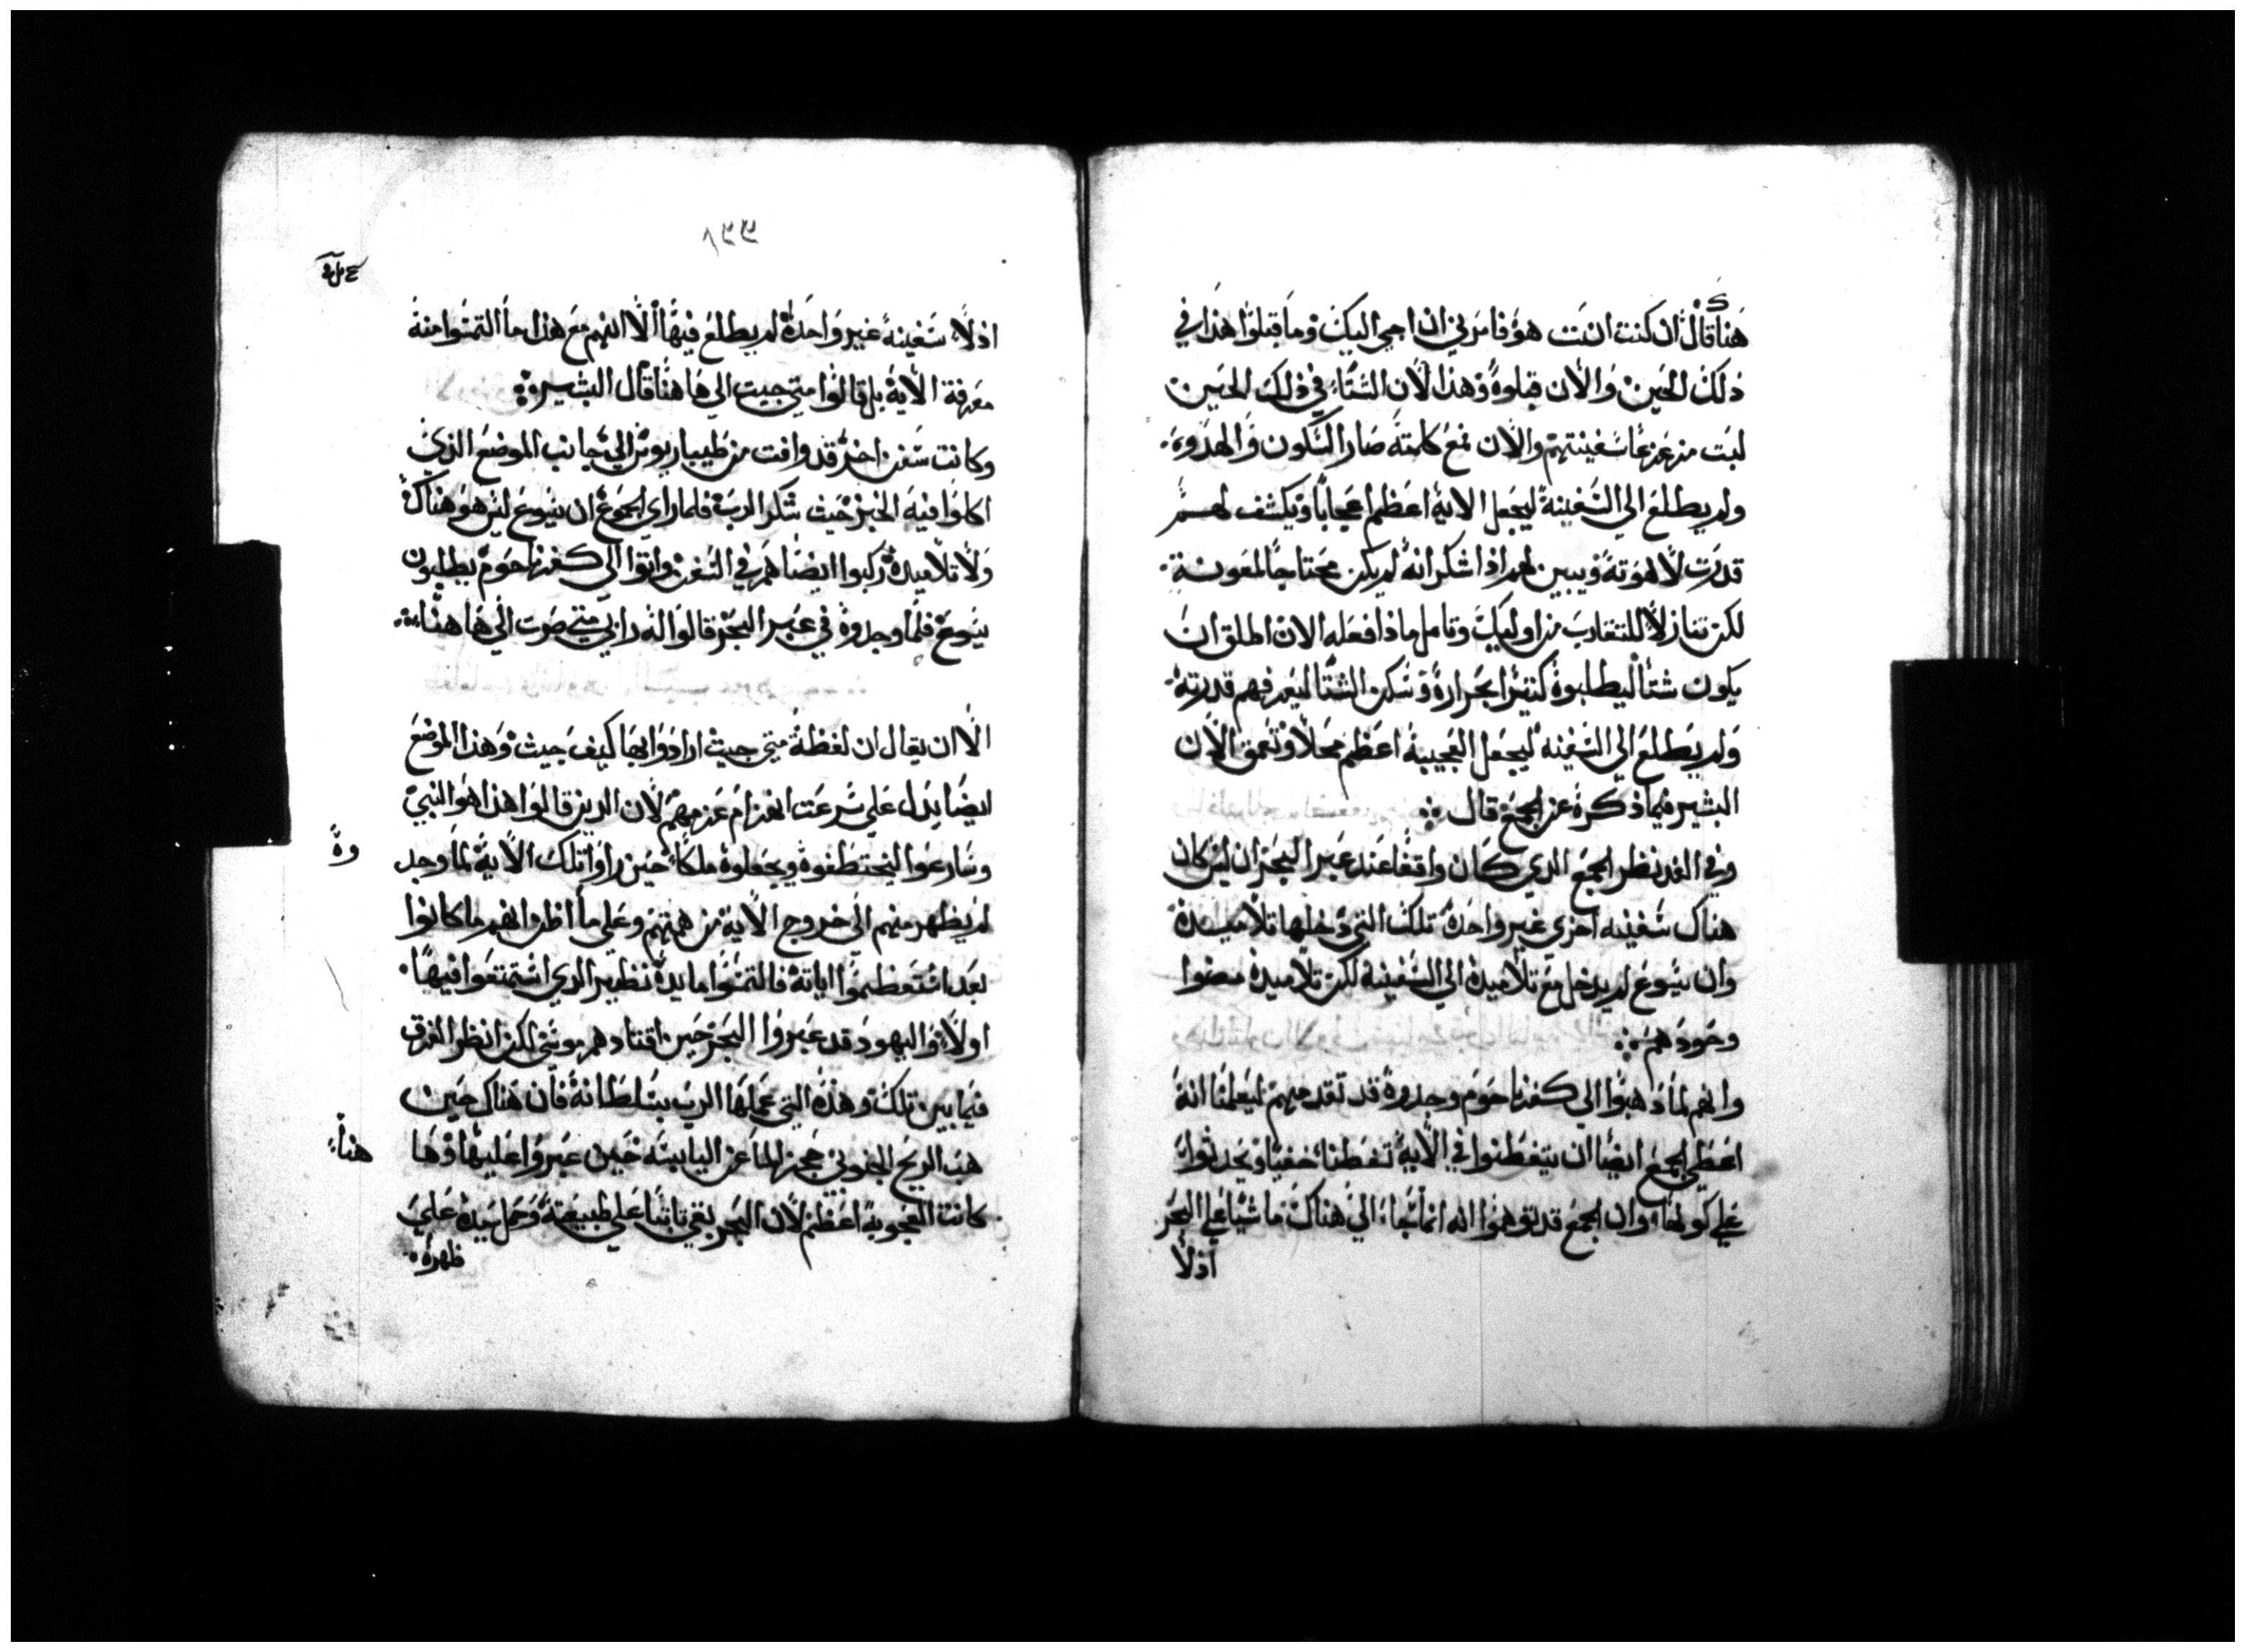 هناك قال ان كنت انت هو فامرني ان اجي اليك وما قبلوا هذا في
ذلك الحين والان قبلوه وهذا لان الشتاء في ذلك الحين
لبت مزعزعا سفينتهم والان مع كلمته صار السكون والهدوء
ولم يطلع الي السفينة ليجعل الاية اعظم اعجابا ويكشف لهم
قدرت لاهوته ويبين لهم اذا شكر انه لم يكن محتاجا لمعونة
لكن تنازلا للتقارب من اوليك وتامل ماذا فعله الان اطلق ان
يكون شتا ليطلبوه كتيرا بحرارة وسكن الشتا ليعرفهم قدرته
ولم يطلع الي السفينه ليجعل العجيبة اعظم محلا وتعمق الان
البشير فيما ذكره عن الجمع قال
وفي الغد نظر الجمع الدي كان واقفا عند عبر البحر ان ليس كان
هناك سفينه اخري غير واحدة تلك التي دخلها تلاميده
وان يسوع لم يدخل مع تلاميده الي السفينة لكن تلاميده مضوا
وحودهم
وانهم لما دهبوا الي كفرنا حوم وجدوه قد تقدمهم ليعلمنا انه
اعطي الجمع ايضا ان يتفطنوا في الاية تفطنا خفيا ويحدثوا
علي كونها وان الجمع قد توهموا انه انما جاء الي هناك ماشيا علي البحر
اذ لا
اذ لا سفينة غير واحدة لم يطلع فيها الا انهم مع هذا ما التمسوا منه
معرفة الاية بل قالوا متي جيت الي هاهنا قال البشير
وكانت سفن اخر قد وافت من طيباريوس الي جانب الموضع الذي
اكلوا فيه الخبز حيث شكر الرب فلما راي الجموع ان يسوع ليس هو هناك
ولا تلاميده ركبوا ايضا هم في السفن واتوا الي كفرنا حوم يطلبون
يسوع فلما وجدوه في عبر البحر قالوا له رابي متي صرت الي هاهنا
الا ان يقال ان لفظة متي جيت ارادوا بها كيف جيت وهذا الموضع
ايضا يدل علي سرعت انغزام عزمهم لان الدين قالوا هذا هو النبي
وسارعوا ليختطفوه ويجعلوه ملكا حين راوا تلك الاية لما وجد
وه
لم يظهر منهم الي خروج الاية من همتهم وعلي ما اظن انهم ما كانوا
بعد استعظموا اياته فالتمسوا مايدة نظير الدي استمتعوا فيها
اولا واليهود قد عبروا البحر حين اقتادهم موسي لكن انظر الفرق
فيما بين تلك وهذه التي عملها الرب بسلطانه فان هناك حين
هب الريح الجنوبي حجز الما عن اليابسه حين عبروا عليها وها
هنا
كانت العجوبة اعظم لان البحر بقي تابتا علي طبيعته وحمل سيده علي
ظهره